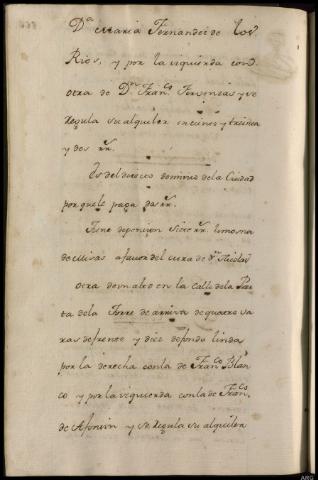 Dª Maria Fernandez de los
Rios, y por la izquierda con
otra de Dⁿ Franco y se
Regula su alquiler en cinco y treinta
y dos rr.
Es del directo dominio de la Ciudad
por que le paga dos rr.
Tiene de pension siete rr. limosna
de Misas a favor del cura de Sⁿ Nicolas
Otra de un alto en la calle de la Puer
ta de la Torre de arriva de quatro va
ras de frente y diez de fondo linda
por la derecha con la de Franco Blan
co y por la izquierda con la de Franco
de Asorein y se Regula su alquiler
ARG